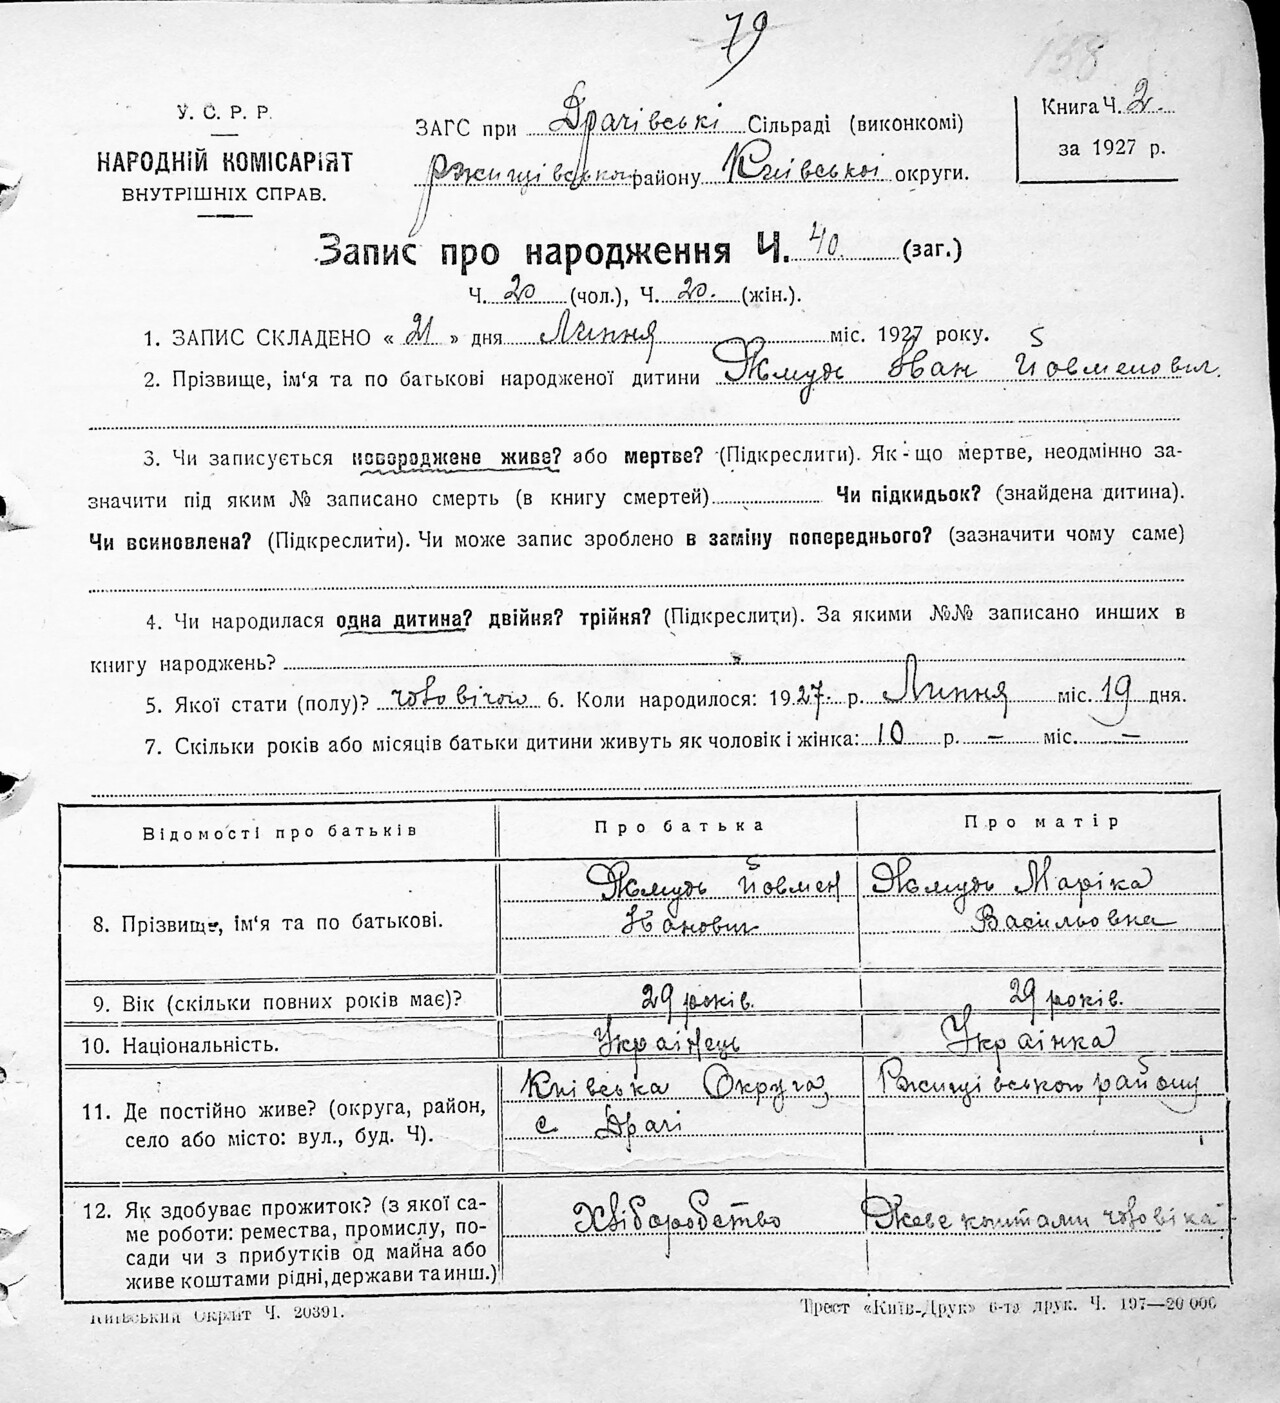 79
138
У. С. Р. Р.
НАРОДНІЙ КОМІСАРІЯТ
ВНУТРІШНІХ СПРАВ.
ЗАГС при Драчівські Сільраді (виконкомі)
Ржищівської району Київської округи.
Книга Ч. 2.
за 1927 р.
Запис про народження Ч. 40. (заг.)
Ч. 20 (чол.), Ч. 20. (жін.).
1. ЗАПИС СКЛАДЕНО « 21 » дня Липня міс. 1927 року.
2. Прізвище, ім‘я та по батькові народженої дитини Жмудь Іван Йовменович.
3. Чи записується новороджене живе? або мертве? (Підкреслити). Як-що мертве, неодмінно за-
значити під яким № записано смерть (в книгу смертей) Чи підкидьок? (знайдена дитина).
Чи всиновлена? (Підкреслити). Чи може запис зроблено в заміну попереднього? (зазначити чому саме)
4. Чи народилася одна дитина? двійня? трійня? (Підкреслити). За якими №№ записано инших в
книгу народжень?
5. Якої стати (полу)? чоловічого 6. Коли народилося: 1927 р. Липня міс. 19 дня.
7. Скільки років або місяців батьки дитини живуть як чоловік і жінка: 10 р. — міс. —
Відомості про батьків
Про батька
Про матір
8. Прізвище, ім‘я та по батькові.
Жмудь Йовмен
Іванович
Жмудь Маріка
Васильовна
9. Вік (скільки повних років має)?
29 років.
29 років.
10. Національність.
Українець
Украінка
11. Де постійно живе? (округа, район,
село або місто: вул., буд. Ч).
Київська Округа,
с Драчі
Ржищівського району
12. Як здобуває прожиток? (з якої са-
ме роботи: ремества, промислу, по-
сади чи з прибутків од майна або
живе коштами рідні, держави та инш.)
Хліборобство
Живе коштами чоловіка
Київський Окрліт Ч. 20391.
Трест «Київ-Друк» 6-та друк. Ч. 197—20000